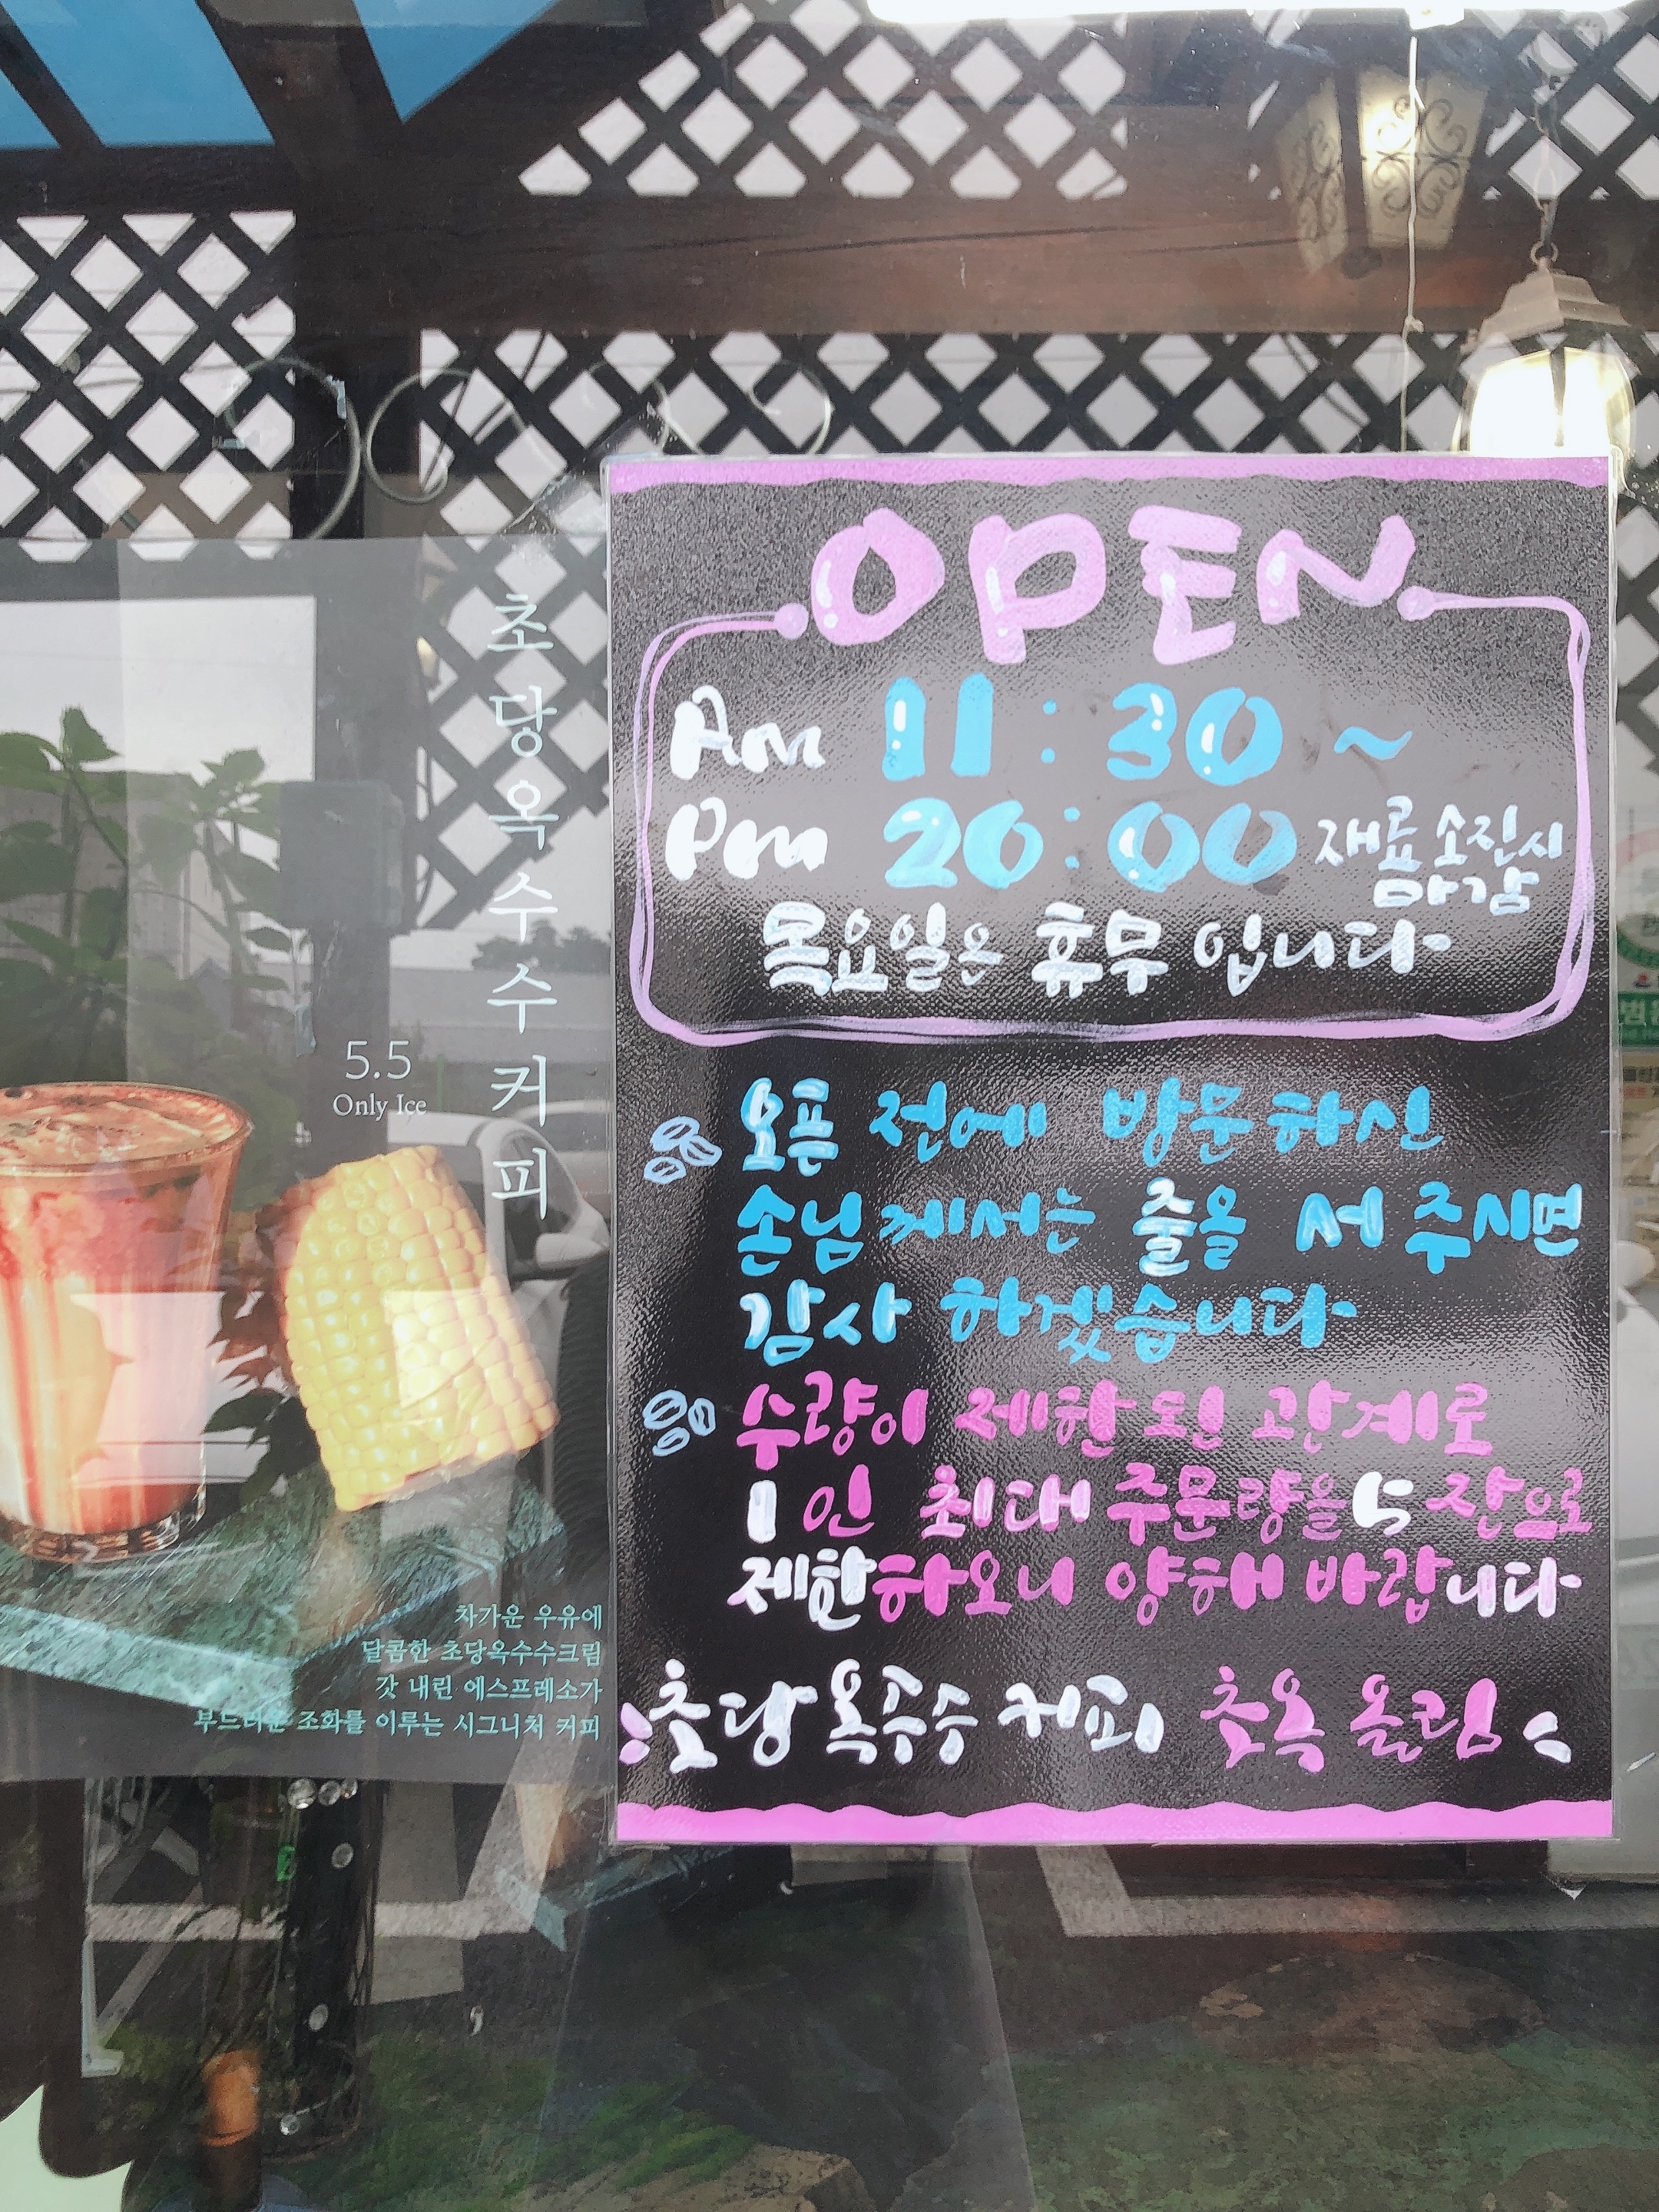 초당옥수수커피
5.5
Only Ice
차가운 우유에
달콤한 초당옥수수크림
갓 내린 에스프레소가
부드러운 조화를 이루는 시그니처 커피
OPEN
Am 11:30~
Pm 20:00 재료 소진시
마감
목요일은 휴무 입니다
오픈 전에 방문하신
손님께서는 줄을 서 주시면
감사 하겠습니다
수량이 제한된 관계로
1인 최대 주문량을 5잔으로
제한하오니 양해 바랍니다
초당옥수수 커피 촛옥 올림